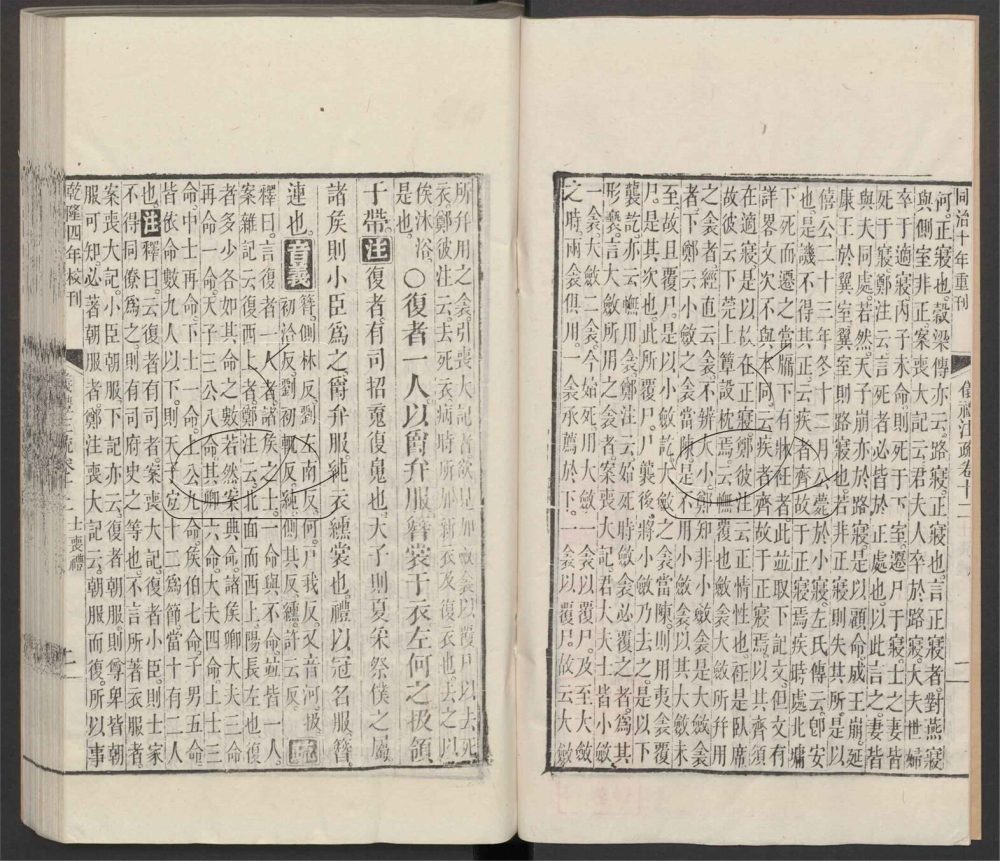 同治十年重刊 儀禮注疏卷十二 一
河。正寢也。穀梁傳亦云。路寢。正寢也。言正寢者。對燕寢
與側室非正。案喪大記云。君夫人卒於路寢。大夫世婦
卒于適寢。內子未命。則死于下室。遷尸于寢。士之妻皆
死于寢。鄭注云。言死者必皆於正處也。以此言之妻皆
與夫同處。若然。天子崩亦於路寢。是以顧命成王崩。延
康王於翼室。翼室則路寢也。若非正寢。則失其所。是以
僖公三十三年冬十二月公薨於小寢。左氏傳云。卽安
也。是譏不得其正。云疾者齊。故于正寢焉。疾時處北墉
下。死而遷之當牖下。有牀衽者。此並取下記文。但文有
詳畧。文次不與本同。云疾者齊。故于正寢焉。以其齊須
在適寢。是以故在正寢。鄭彼注云。正情性也。衽是臥席
故彼云下莞上簟設枕焉。云幠覆也。大斂所幷用
之衾者。經直云衾。不辨大小。鄭知非小斂衾。是大斂衾
者。下鄭云小斂之衾當陳。是不用小斂衾。以其大斂未
至。故且覆尸。是以小斂訖。大斂之衾當陳。則用夷衾覆
尸。是其次也。此所覆尸。尸襲後。將小斂乃去之。是以下
襲訖亦云幠用衾。鄭注云。始死時斂衾必覆之者。爲其
形褻。言大斂所用之衾者。案喪大記君大夫士皆小斂
一衾。大斂二衾。今始死用大斂一衾以覆尸。及至大斂
之時。兩衾俱用。一衾承薦於下。一衾以覆尸。故云大斂
所幷用之衾。引喪大記者。欲見加斂衾以覆尸。以去死
衣。鄭彼注云。去死衣病時所加新衣及復衣也。去之以
俟沐浴。
是也。〇復者一人以爵弁服簪裳于衣左何之扱領
于帶。注復者有司招䰟復魄也。天子則夏采祭僕之屬
諸矦則小臣爲之。爵弁服純衣纁裳也。禮以冠名服。簪
連也。音義簪。側林反。劉左南反。何。戸我反。又音河。扱。
初洽反。劉初輒反。純。側其反。纁。許云反。疏
釋曰。言復者一人者。諸矦之士。一命與不命。並皆一人。
案雜記云。復西上者。鄭注云。北面而西上。陽長左也。復
者多少各如其命之數。若然。案典命。諸矦卿大夫三命
再命一命。天子三公八命。其卿六命。大夫四命。上士三
命。中士再命。下士一命。上公九命。矦伯七命。子男五命。
皆依命數。九人以下。則天子宜十二爲節。當十有二人
也。注釋曰。云復者有司者。案喪大記。復者小臣。則士家
不得同僚爲之。則有司府史之等也。不言所著衣服者。
案喪大記。小臣朝服。下記亦云。復者朝服。則尊卑皆朝
服可知。必著朝服者。鄭注喪大記云。朝服而復。所以事
乾隆四年校刊 士喪禮 一